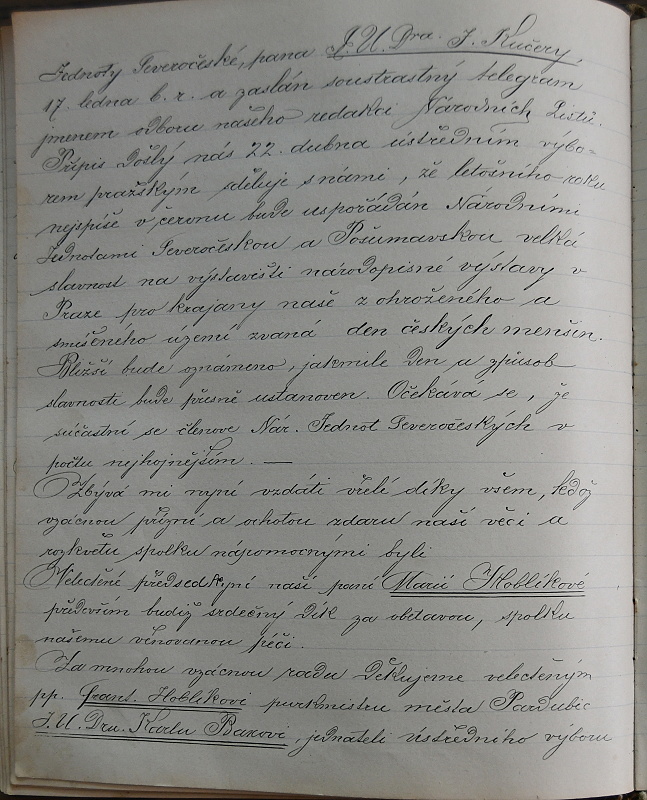 Jednoty Severočeské, pana J. U. Dra. J. Kučery,
17. ledna b. r. a zaslán soustrastný telegram
jmenem odboru našeho redakci Národních Listů.
Přípis došlý nás 22. dubna ústředním výbo-
rem pražským sděluje s námi, že letošního roku
nejspíše v červnu bude uspořádán Národními
Jednotami Severočeskou a Pošumavskou velká
slavnost na výstavišti národopisné výstavy v
Praze pro krajany naše z ohroženého a
smíšeného území zvaná den českých menšin.
Bližší bude oznámeno, jakmile den a způsob
slavnosti bude přesně ustanoven. Očekává se, že
súčastní se členove Nár. Jednot Severočeských v
počtu nejhojnějším. —
Zbývá mi nyní vzdáti vřelé díky všem, kdož
vzácnou přízní a ochotou zdaru naší věci a
rozkvětu spolku nápomocnými byli
Velectěné předsedkyni naší paní Marii Hoblíkové
především budiž srdečný dík za obětavou, spolku
našemu věnovanou péči.
Za mnohou vzácnou radu děkujeme velectěným
pp. Frant. Hoblíkovi purkmistru města Pardubic
J. U. Dru. Karlu Baxovi, jednateli ústředního výboru